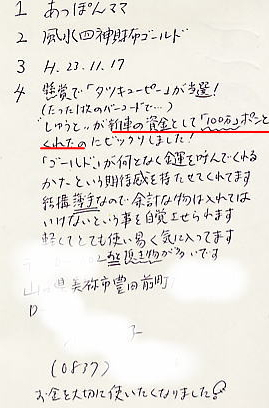 1 あっぽんママ
2 風水四神財布ゴールド
3 H.23.11.17
4 懸賞で「タツキューピー」が当選!
(たった1枚のバーコードで…)
"しゅうと"が新車の資金として「100万」ポーンと
くれたのにビックリしました!
「ゴールド」が何となく金運を呼んでくれる
かな という期待感を持たせてくれてます
結構薄手なので余計な物は入れては
いけないという事を自覚させられます
軽くてとても使い易く気に入ってます
頂き物が多いです
県美祢市豊田前町
(0837)
お金を大切に使いたくなりました